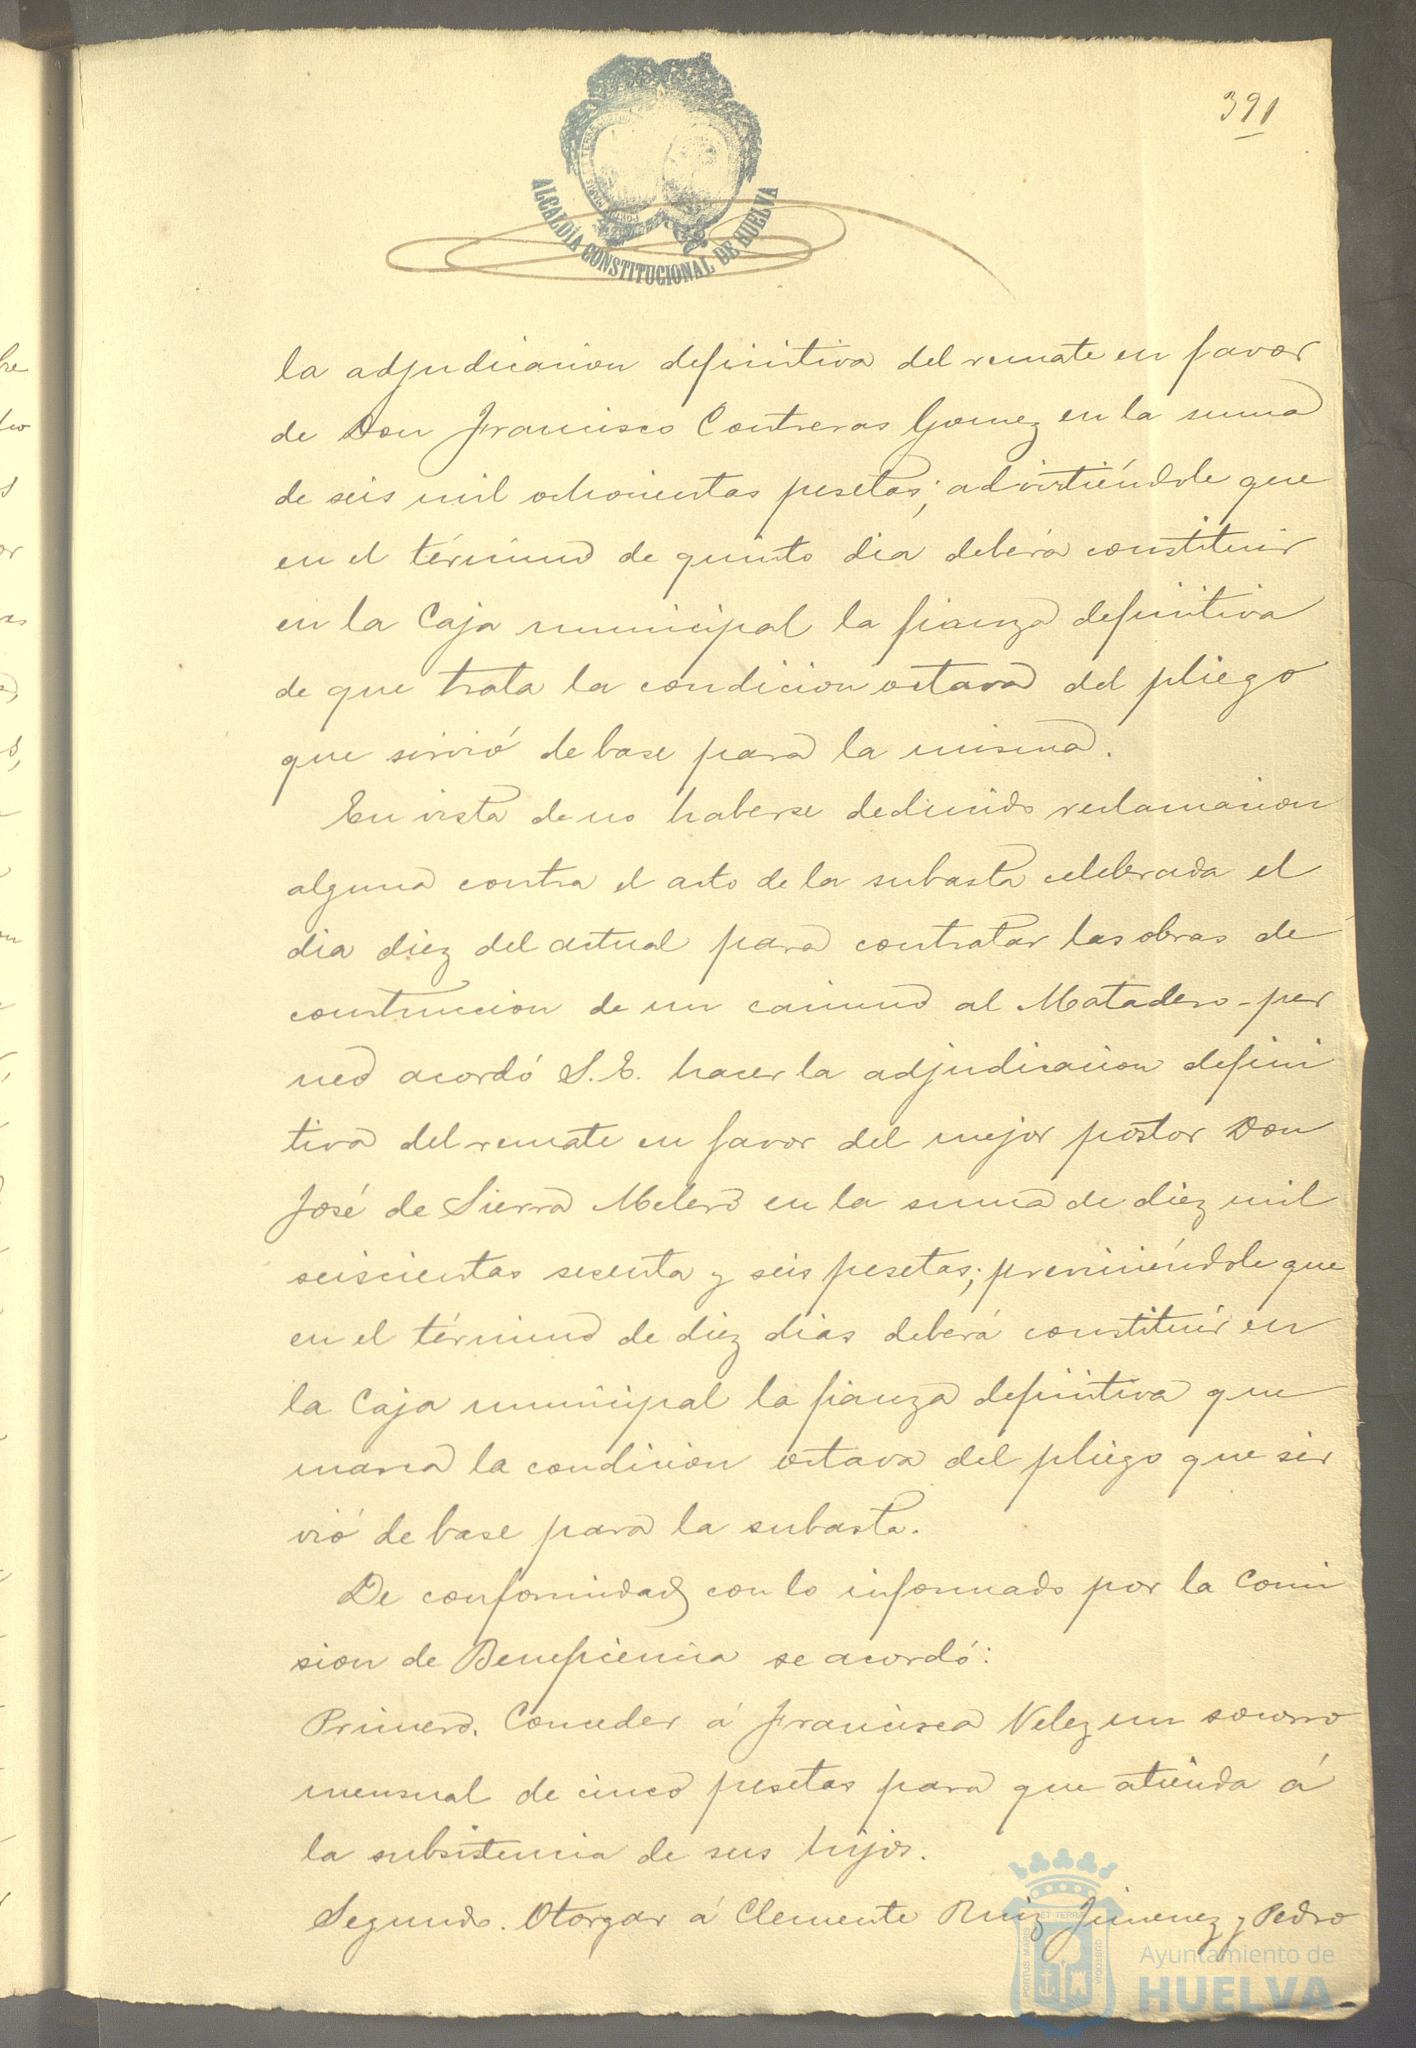 391
ALCALDÍA CONSTITUCIONAL DE HUELVA
la adjudicacion definitiva del remate en favor
de Don Francisco Contreras Gomez en la suma
de seis mil ochocientas pesetas; advirtiéndole que
en el término de quinto dia deberá constituir
en la Caja municipal la fianza definitiva
de que trata la condicion octava del pliego
que sirvió de base para la misma.
En vista de no haberse deducido reclamacion
alguna contra el acto de la subasta celebrada el
dia diez del actual para contratar las obras de
construccion de un camino al Matadero-per
neo acordó S.E. hacer la adjudicacion defini
tiva del remate en favor del mejor postor Don
José de Sierra Melero en la suma de diez mil
seiscientas sesenta y seis pesetas; previniéndole que
en el término de diez dias deberá constituír en
la Caja municipal la fianza definitiva que
marca la condicion octava del pliego que sir
vió de base para la subasta.
De conformidad con lo informado por la Comi
sion de Beneficencia se acordó:
Primero. Conceder á Francisca Velez un socorro
mensual de cinco pesetas para que atienda á
la subsistencia de sus hijos.
Segundo. Otorgar á Clemente Ruiz Jimenez y Pedro
Ayuntamiento de
HUELVA